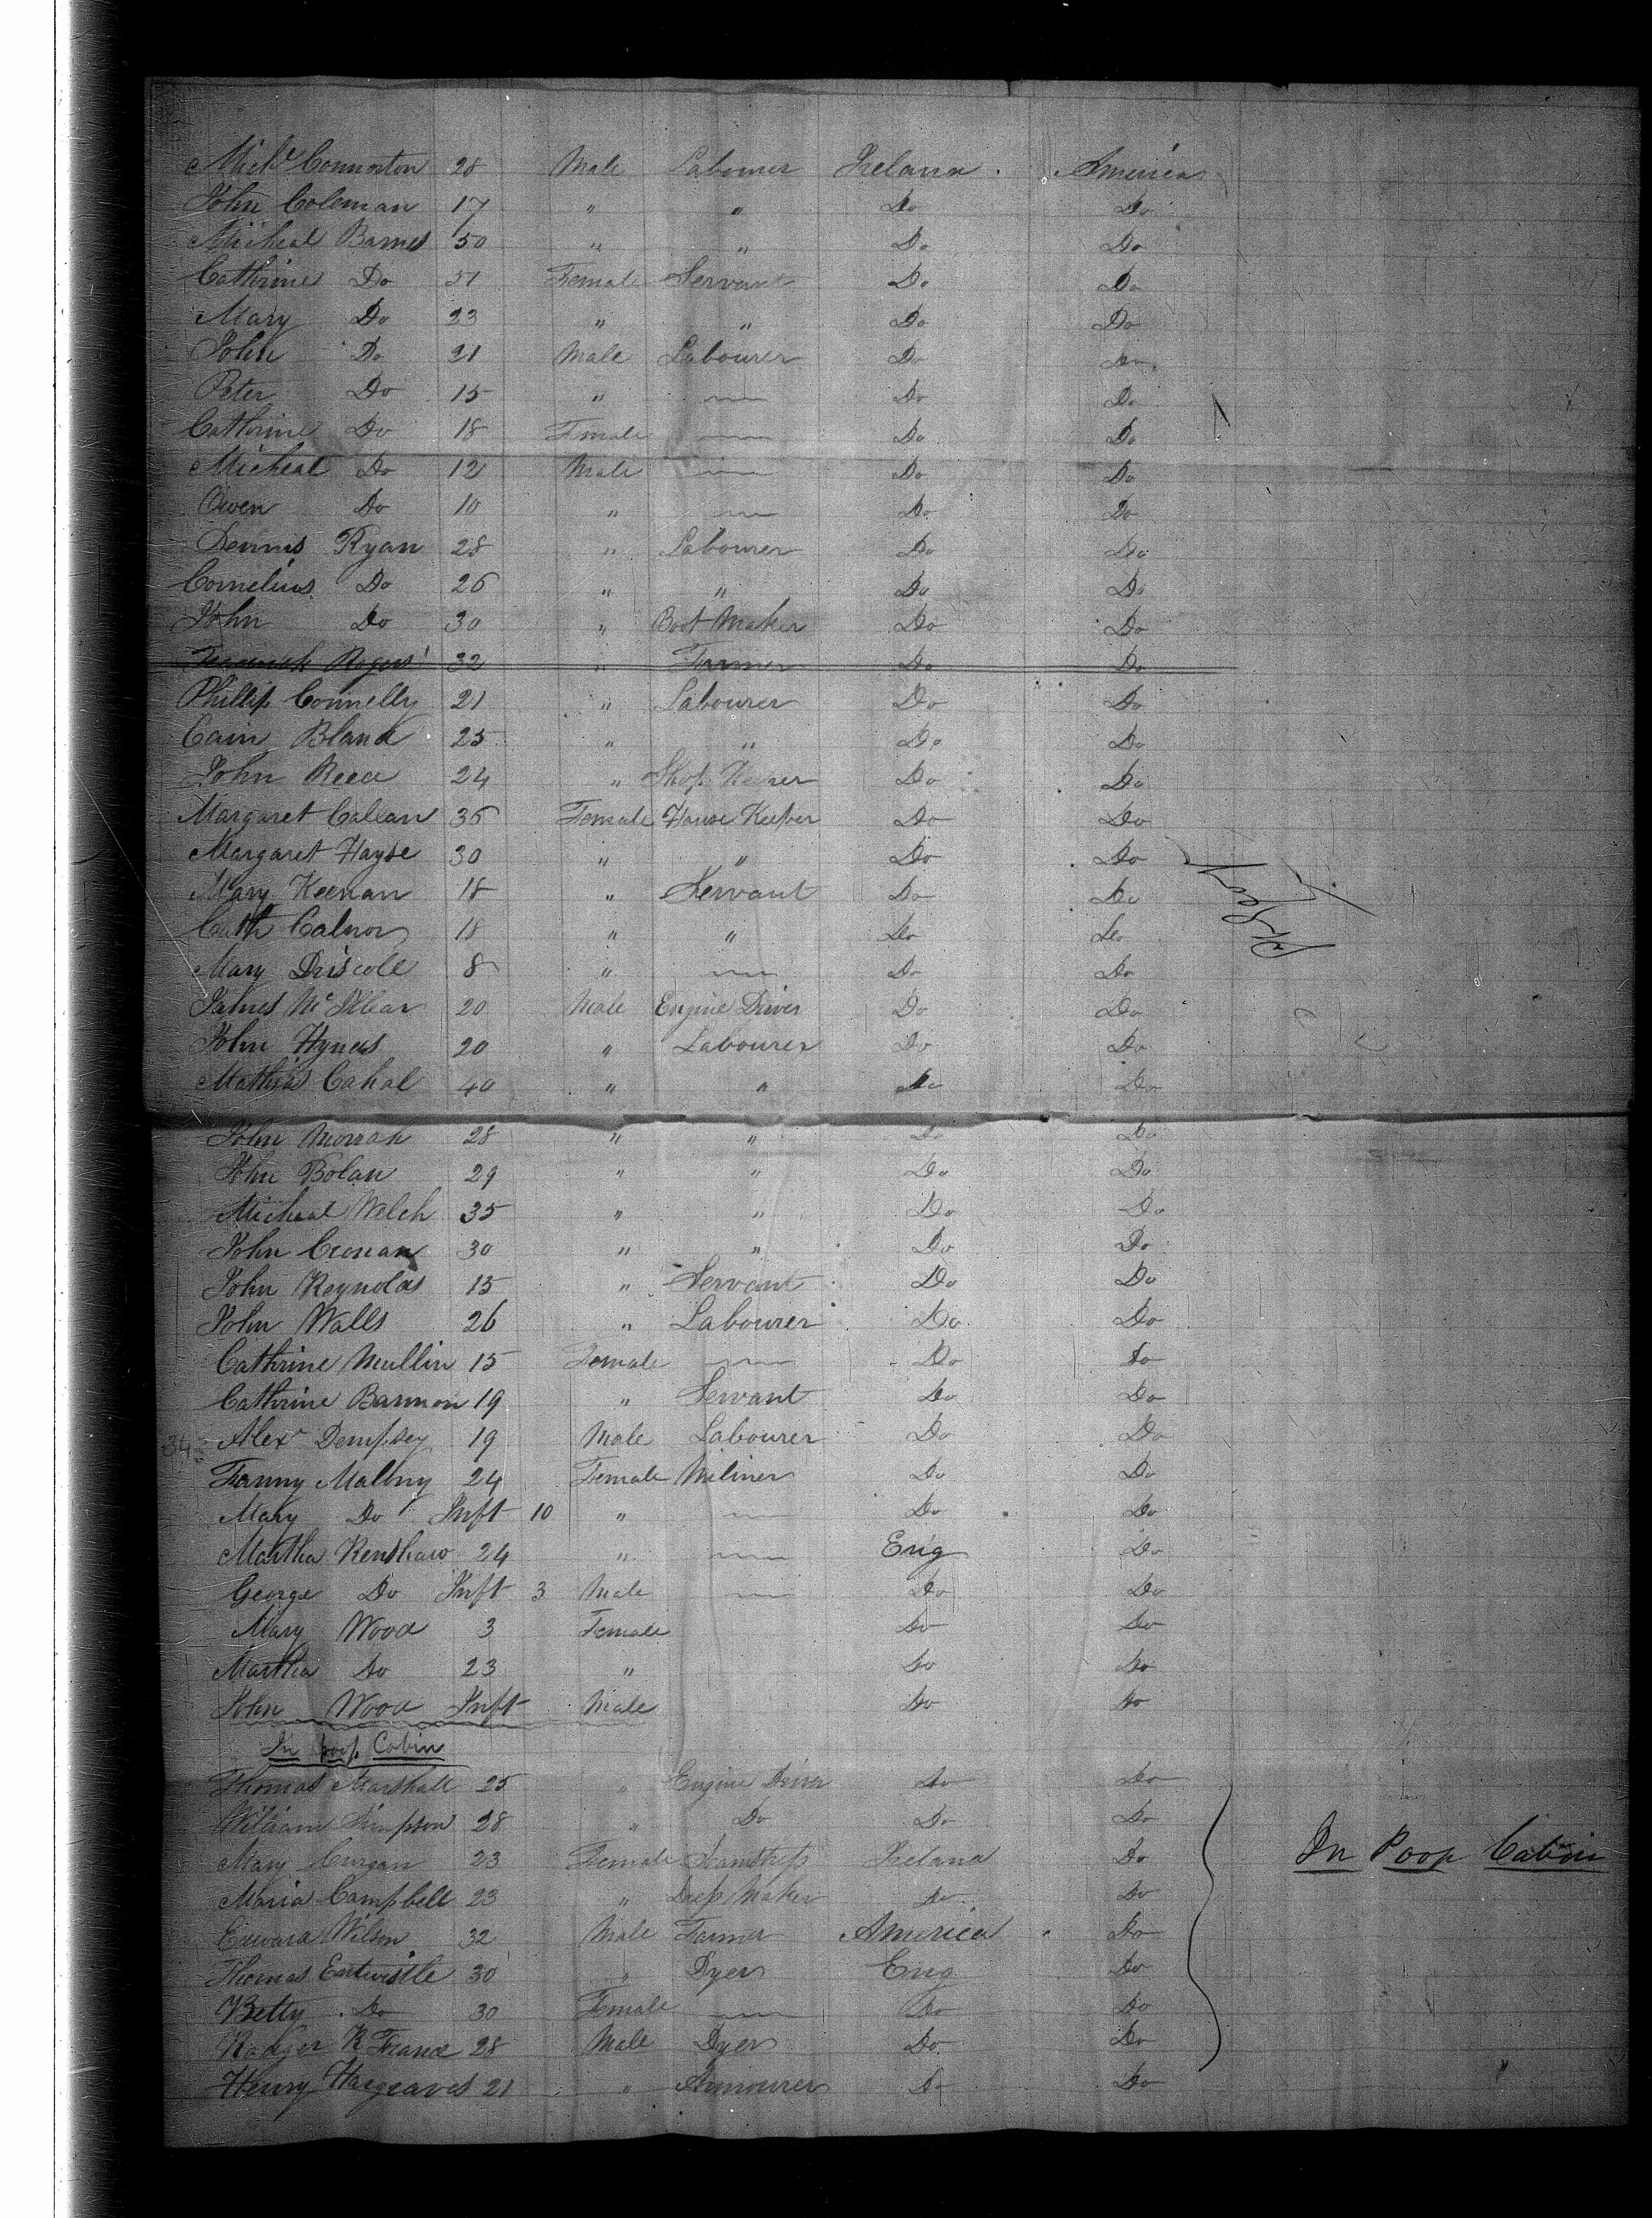 Michl Connorton 28 Male Labourer Ireland America
John Coleman 17 " " Do Do
Micheal Barnes 50 " " Do Do
Cathrine Do 51 Female Servant Do Do
Mary Do 23 " " Do Do
John Do 21 Male Labourer Do Do
Peter Do 15 " — Do Do
Cathrine Do 18 Female — Do Do
Micheal Do 12 Male — Do Do
Owen Do 10 " — Do Do
Dennis Ryan 28 " Labourer Do Do
Cornelius Do 26 " " Do Do
John Do 30 " Boot Maker Do Do
Rogers 32 " Farmer Do Do
Phillip Connelly 21 " Labourer Do Do
Cain Bland 25 " " Do Do
John Reed 24 " Shop Keeper Do Do
Margaret 36 Female House Keeper Do Do
Margaret Hayse 30 " " Do Do
Mary Keenan 18 " Servant Do Do
Cath Calnor 18 " " Do Do
Mary Driscole 8 " — Do Do
James 20 Male Engine Driver Do Do
John Hynes 20 " Labourer Do Do
Mathias Cahal 40 " " Do Do
John Morrah 28 " " Do Do
John Bolan 29 " " Do Do
Micheal Welch 35 " " Do Do
John Cronan 30 " " Do Do
John Reynolds 15 " Servant Do Do
John Walls 26 " Labourer Do Do
Cathrine Mullin 15 Female — Do Do
Cathrine Bannon 19 " Servant Do Do
34 Alexr Dempsey 19 Male Labourer Do Do
Fanny Malony 24 Female Miliner Do Do
Mary Do Inft 10 " — Do Do
Martha Renshaw 24 " — Eng Do
George Do Inft 3 Male — Do Do
Mary Wood 3 Female Do Do
Martha Do 23 " Do Do
John Wood Inft Male Do Do
In poop Cabin
Thomas Marshall 25 " Engine Driver Do Do
William Simpson 28 " Do Do Do
Mary Curgan 23 Female Ireland Do
Maria Campbell 23 " Dress Maker Do Do
Edward Wilson 32 Male Farmer America Do
Thomas Entwistle 30 " Dyer Eng Do
Betty Do 30 Female — Do Do
Rodger R France 28 Male Dyer Do Do
Henry Hargreaves 21 " Armourer Do Do
In Poop Cabin